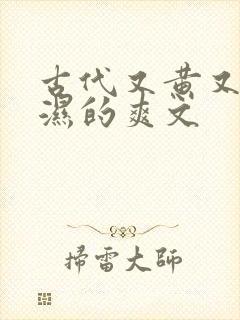 古代又黄又
濕的爽文
掃雷大師